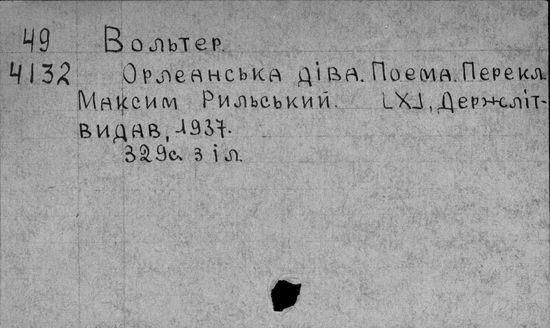 49 Вольтер.
4132 Орлеанська діва. Поема. Перекл.
Максим Рильський. [Х], Держліт-
видав, 1937.
329с. з іл.